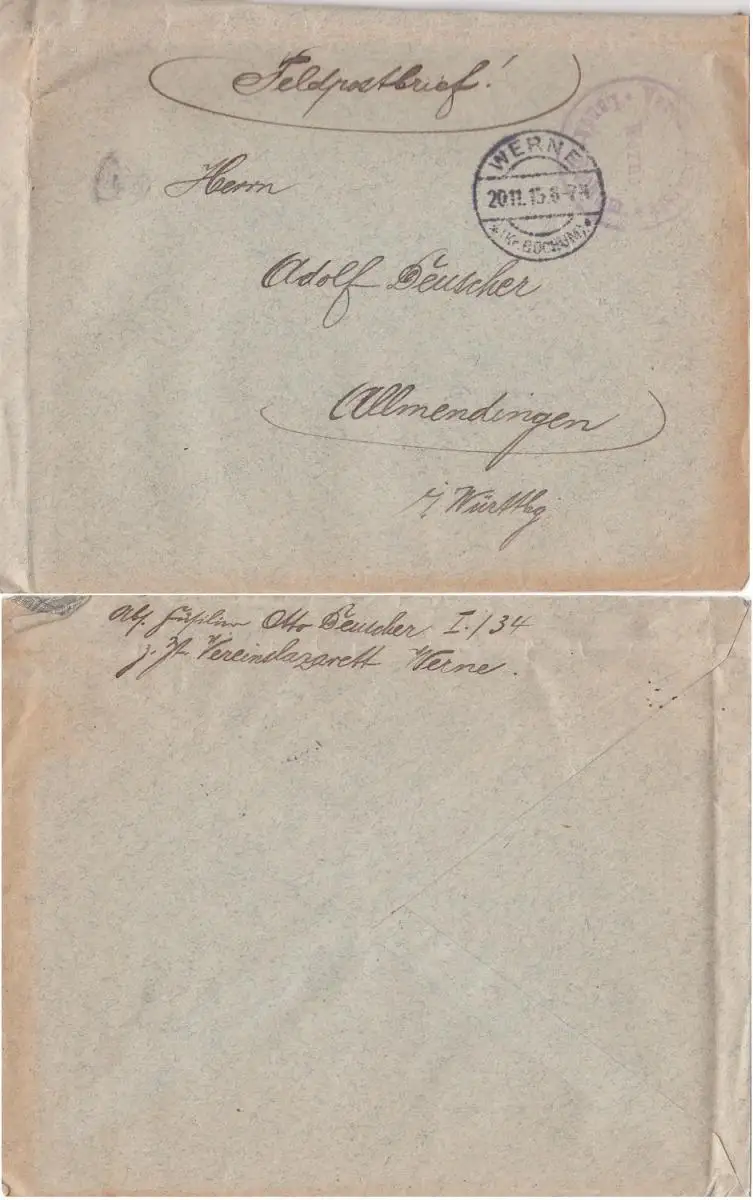 Feldpostbrief!
WERNE
20.11.15.6-7N
*(Kr. BOCHUM)*
Herrn
Adolf Deuscher
Allmendingen
i/ Württbg
Abs. Füsilier Otto Deuscher I./34
z. Zt. Vereinslazarett Werne.